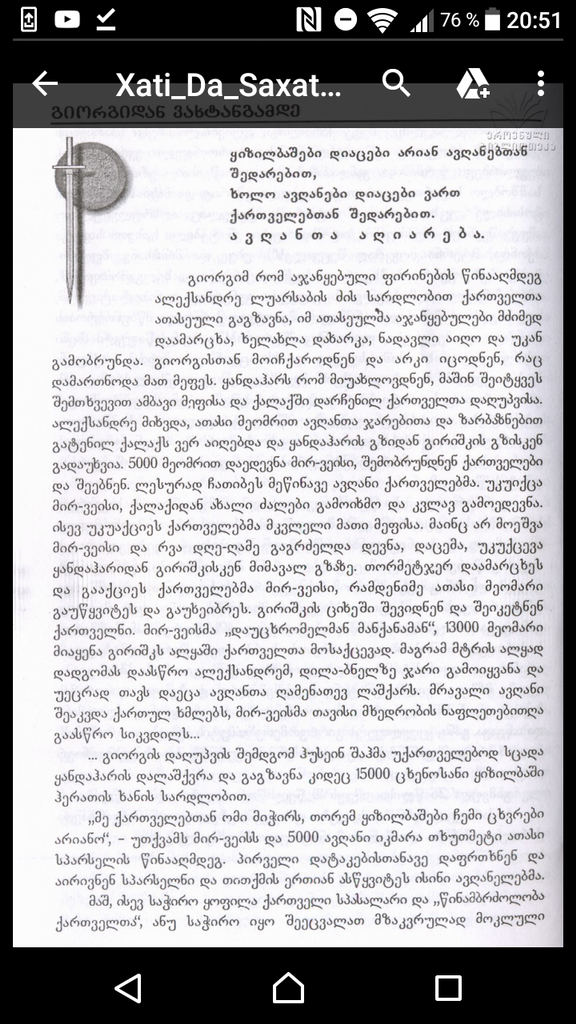 76 % 20:51
Xati_Da_Saxat...
გიორგიდან ვახტანგამდე
ეროვნული
ბიბლიოთეკა
ყიზილბაშები დიაცები არიან ავღანებთან
შედარებით,
ხოლო ავღანები დიაცები ვართ
ქართველებთან შედარებით.
ა ვ ღ ა ნ თ ა ა ღ ი ა რ ე ბ ა.
გიორგიმ რომ აჯანყებული ფირინების წინააღმდეგ
ალექსანდრე ლუარსაბის ძის სარდლობით ქართველთა
ათასეული გაგზავნა, იმ ათასეულმა აჯანყებულები მძიმედ
დაამარცხა, ხელახლა დახარკა, ნადავლი აიღო და უკან
გამობრუნდა. გიორგისთან მოიჩქაროდნენ და არკი იცოდნენ, რაც
დამართნოდა მათ მეფეს. ყანდაჰარს რომ მიუახლოვდნენ, მაშინ შეიტყვეს
შემთხვევით ამბავი მეფისა და ქალაქში დარჩენილ ქართველთა დაღუპვისა.
ალექსანდრე მიხვდა, ათასი მეომრით ავღანთა ჯარებითა და ზარბაზნებით
გატენილ ქალაქს ვერ აიღებდა და ყანდაჰარის გზიდან გირიშკის გზისკენ
გადაუხვია. 5000 მეომრით დაედევნა მირ-ვეისი, შემობრუნდნენ ქართველები
და შეებნენ. ლესურად ჩათიბეს მეწინავე ავღანი ქართველებმა. უკუიქცა
მირ-ვეისი, ქალაქიდან ახალი ძალები გამოიხმო და კვლავ გამოედევნა.
ისევ უკუაქციეს ქართველებმა მკვლელი მათი მეფისა. მაინც არ მოეშვა
მირ-ვეისი და რვა დღე-ღამე გაგრძელდა დევნა, დაცემა, უკუქცევა
ყანდაჰარიდან გირიშკისკენ მიმავალ გზაზე. თორმეტჯერ დაამარცხეს
და გააქციეს ქართველებმა მირ-ვეისი, რამდენიმე ათასი მეომარი
გაუწყვიტეს და გაუხეიბრეს. გირიშკის ციხეში შევიდნენ და შეიკეტნენ
ქართველნი. მირ-ვეისმა „დაუცხრომელმან მანქანამან“, 13000 მეომარი
მიაყენა გირიშკს ალყაში ქართველთა მოსაქცევად. მაგრამ მტრის ალყად
დადგომას დაასწრო ალექსანდრემ, დილა-ბნელზე ჯარი გამოიყვანა და
უეცრად თავს დაეცა ავღანთა ღამენათევ ლაშქარს. მრავალი ავღანი
შეაკვდა ქართულ ხმლებს, მირ-ვეისმა თავისი მხედრობის ნაფლეთებითღა
გაასწრო სიკვდილს...
... გიორგის დაღუპვის შემდგომ ჰუსეინ შაჰმა უქართველებოდ სცადა
ყანდაჰარის დალაშქვრა და გაგზავნა კიდეც 15000 ცხენოსანი ყიზილბაში
ჰერათის ხანის სარდლობით.
„მე ქართველებთან ომი მიჭირს, თორემ ყიზილბაშები ჩემი ცხვრები
არიანო“, – უთქვამს მირ-ვეისს და 5000 ავღანი იკმარა თხუთმეტი ათასი
სპარსელის წინააღმდეგ. პირველი დატაკებისთანავე დაფრთხნენ და
აირივნენ სპარსელნი და თითქმის ერთიან ასწყვიტეს ისინი ავღანელებმა.
მაშ, ისევ საჭირო ყოფილა ქართველი სპასალარი და „წინამბრძოლობა
ქართველთა“, ანუ საჭირო იყო შეეცვალათ მზაკვრულად მოკლული